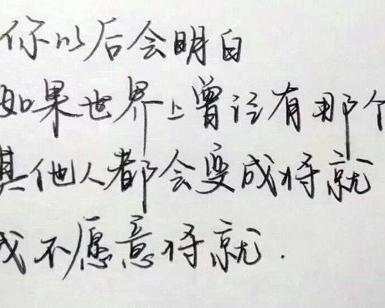 你以后会明白
如果世界上曾经有那个
其他人都会变成将就
我不愿意将就.